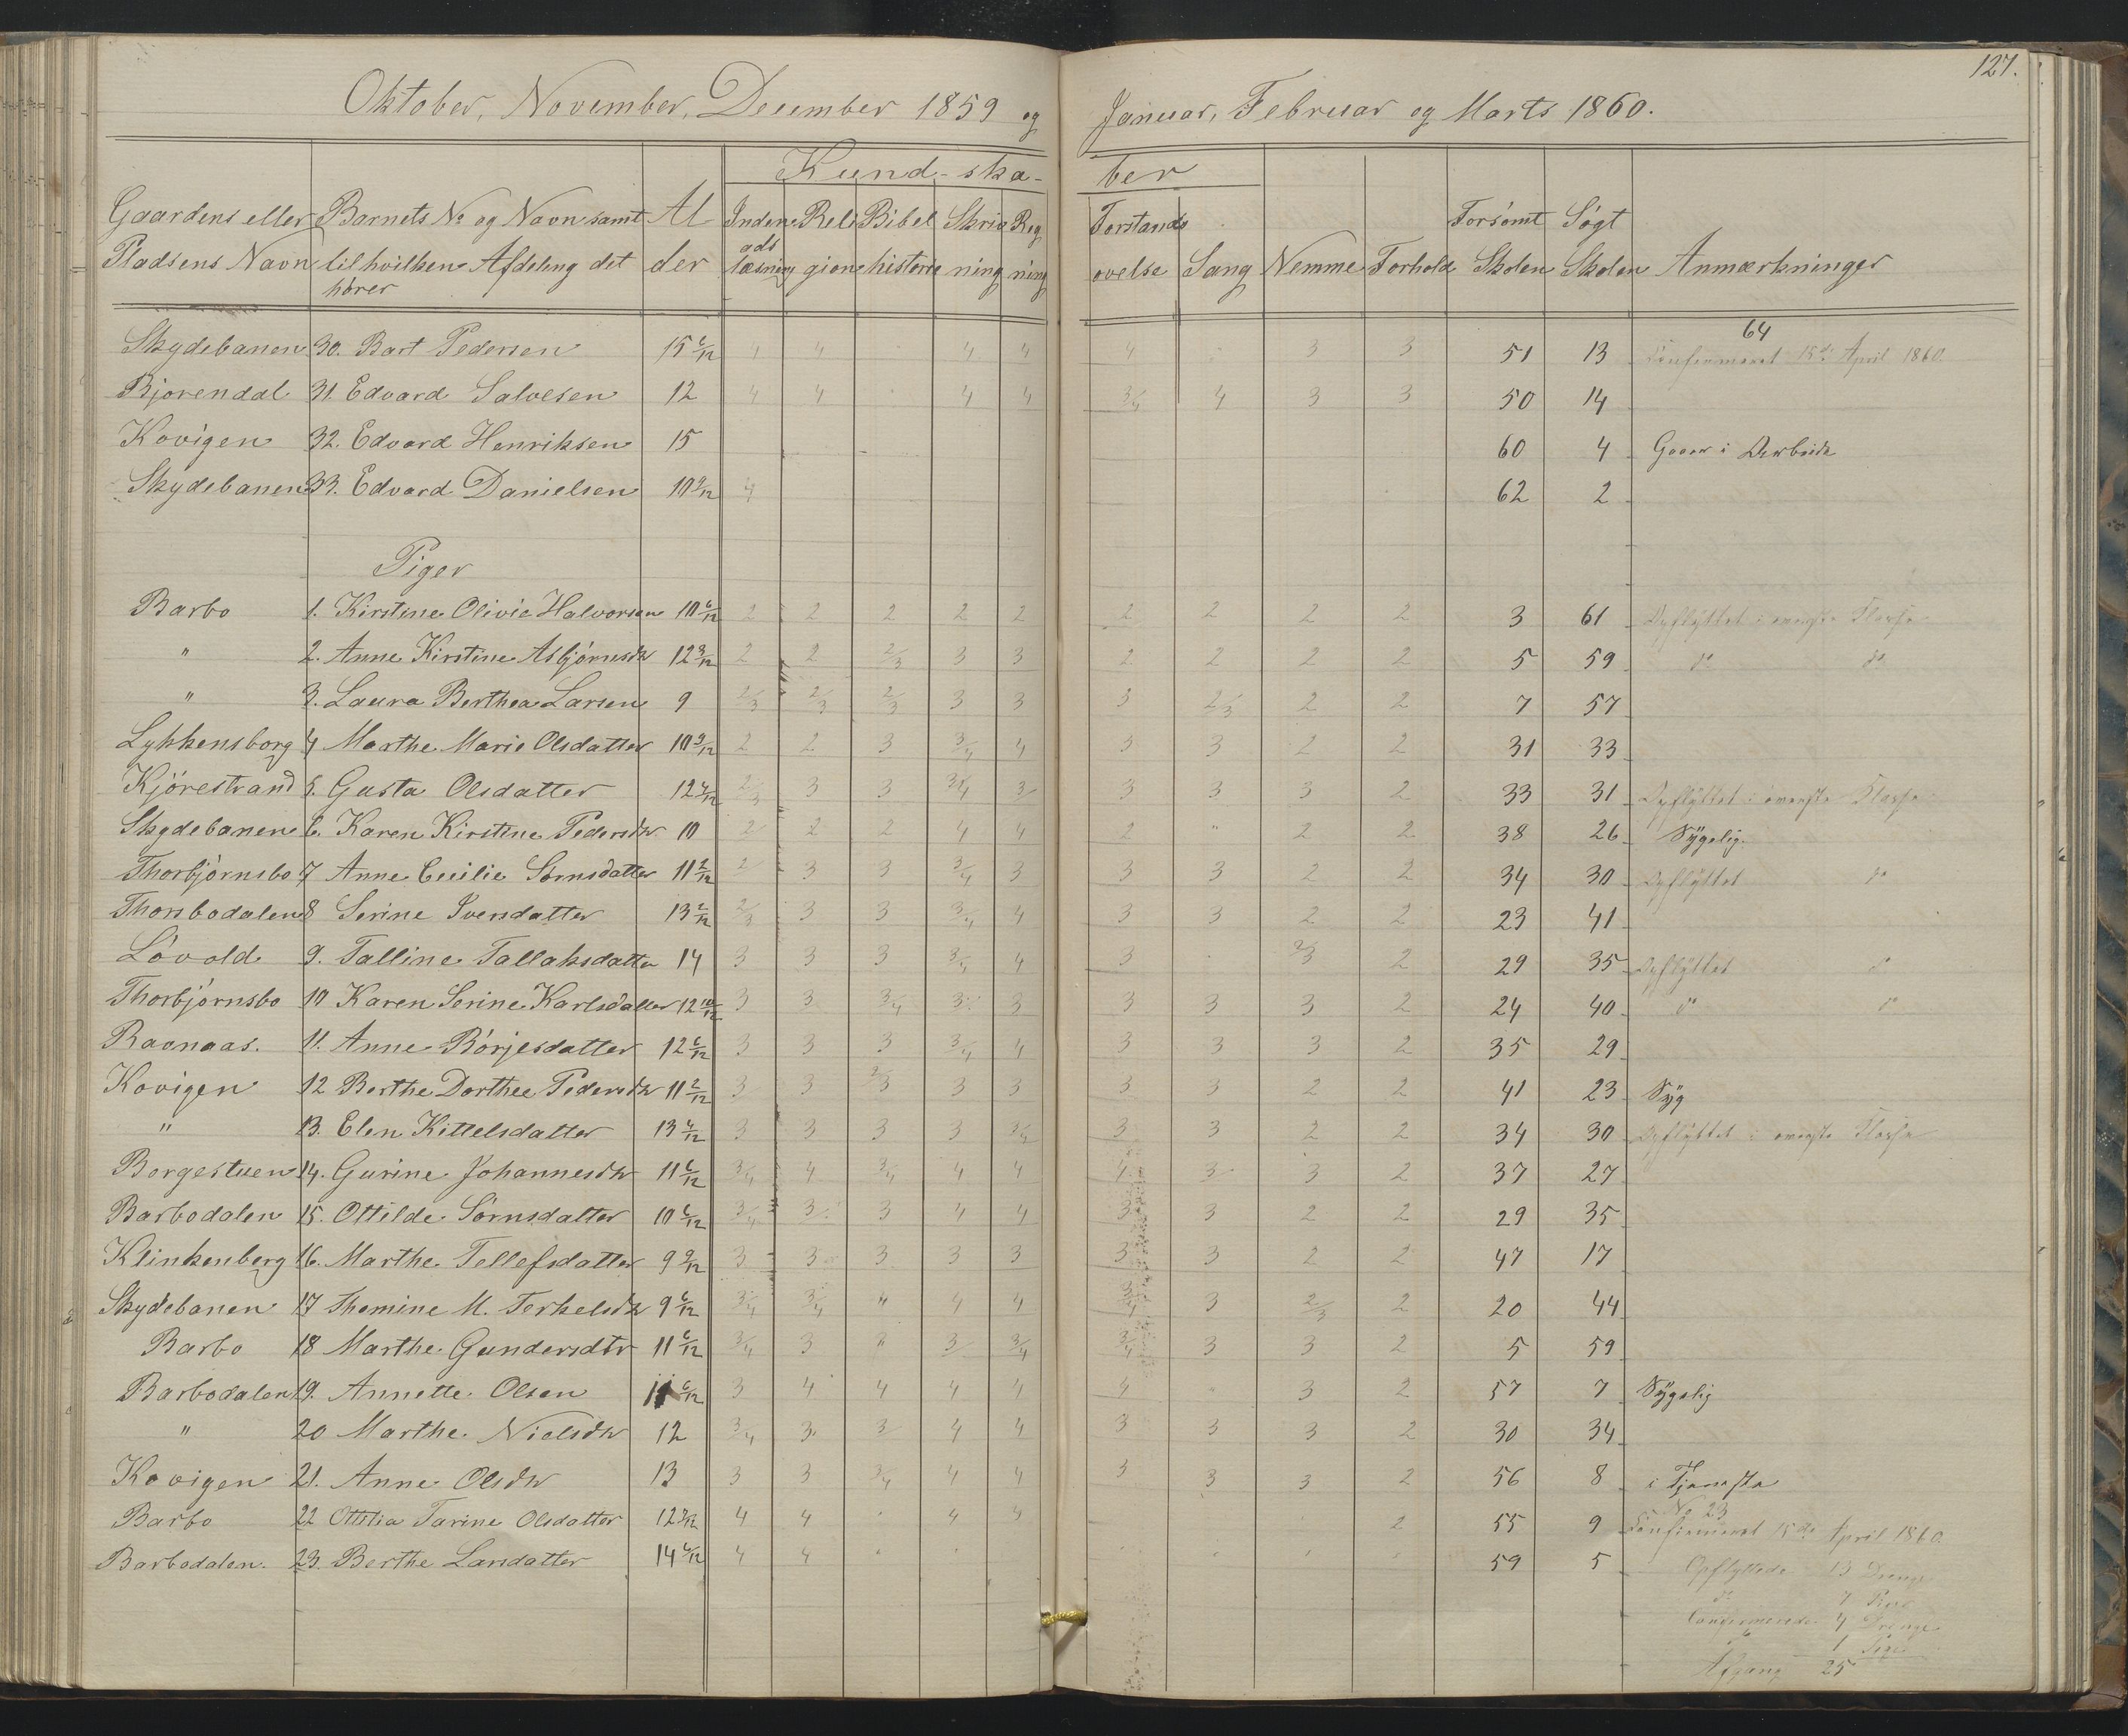 127.
Oktober, November, December 1859 og Januar, Februar og Marts 1860.
Kund-ska- ber
Gaardens eller Pladsens Navn Barnets No og Navn samt til hvilken Afdeling det hører Al der Inden ads læsning Reli gion Bibel historie Skriv ning Reg ning Forstands øvelse Sang Nemme Forhold Forsömt Skolen Sögt Skolen Anmærkninger
64
Skydebanen 30. Bart Pedersen 15 6/12 4 4 4 4 4 3 3 51 13 Confirmeret 15de April 1860.
Bjorendal 31. Edvard Salvesen 12 4 4 4 4 3/4 4 3 3 50 14
Kovigen 32. Edvard Henriksen 15 60 4 Gaaer i Arbeide
Skydebanen 33. Edvard Danielsen 10 9/12 4 62 2
Piger
Barbo 1. Kirstine Olivie Halvorsen 10 6/12 2 2 2 2 2 2 2 2 2 3 61 Opflÿttet i øverste Klasse
" 2. Anne Kirstine Asbjørnsdr 12 9/12 2 2 2/3 3 3 2 2 2 2 5 59 do do
" 3. Laura Berthea Larsen 9 2/3 2/3 2/3 3 3 3 2/3 2 2 7 57
Lykkensborg 4 Marthe Marie Olsdatter 10 9/12 2 2 3 3/4 4 3 3 2 2 31 33
Kjörestrand 5. Gusta Olsdatter 12 2/3 3 3 3/4 3 3 3 3 2 33 31 Opflÿttet i øverste Klasse
Skydebanen 6. Karen Kirstine Pedersdr 10 2 2 2 4 4 2 " 2 2 38 26 Sÿgelig.
Thorbjörnsbo 7 Anne Cecilie Sörnsdatter 11 2/12 2 3 3 3/4 3 3 3 2 2 34 30 Opflÿttet do
Thorsbodalen 8 Serine Svensdatter 13 2/12 2/3 3 3 3/4 4 3 3 2 2 23 41
Lövold 9. Talline Tallaksdatter 14 3 3 3 3/4 4 3 2/3 2 29 35 Opflÿttet do
Thorbjörnsbo 10 Karen Serine Karlsdatter 12 10/12 3 3 3/4 3 3 3 3 3 2 24 40 do do
Ravnaas. 11. Anne Börjesdatter 12 6/12 3 3 3 3/4 4 3 3 3 2 35 29
Kovigen 12 Berthe Dorthee Pedersdr 11 2/12 3 3 2/3 3 3 3 3 2 2 41 23 Sÿg
" 13. Elen Kittelsdatter 13 3 3 3 3 3/4 3 3 2 2 34 30 Opflÿttet i øverste Klasse
Borgestuen 14. Gurine Johannesdr 11 6/12 3/4 4 3/4 4 4 4 3 3 2 37 27
Barbodalen 15. Ottilde Sörnsdatter 10 6/12 3/4 3 3 4 4 3 3 2 2 29 35
Klinkenberg 16. Marthe Tellefsdatter 9 9/12 3 3 3 3 3 3 3 2 2 47 17
Skydebanen 17 Thomine M. Terkelsdr 9 6/12 3/4 3/4 " 4 4 3/4 3 2/3 2 20 44
Barbo 18 Marthe Gundersdtr 11 6/12 3/4 3 " 3 3/4 3/4 3 3 2 5 59
Barbodalen 19. Annette Olsen 11 6/12 3 4 4 4 4 4 " 3 2 57 7 Sÿgelig
" 20 Marthe Nielsdr 12 3/4 3 3 4 4 3 3 3 2 30 34
Kovigen 21. Anne Olsdr 13 3 3 3/4 4 4 3 3 3 2 56 8 i Tjeneste
No 23
Barbo 22 Ottilia Tarine Olsdatter 12 4 4 4 3 2 55 9 Confirmeret 15de April 1860
Barbodalen. 23. Berthe Landatter 14 6/12 4 4 59 5
Opflyttede 13 Drenge
do 7 Piger
Confirmerede 4 Drenge
1 Pige
Afgang 25